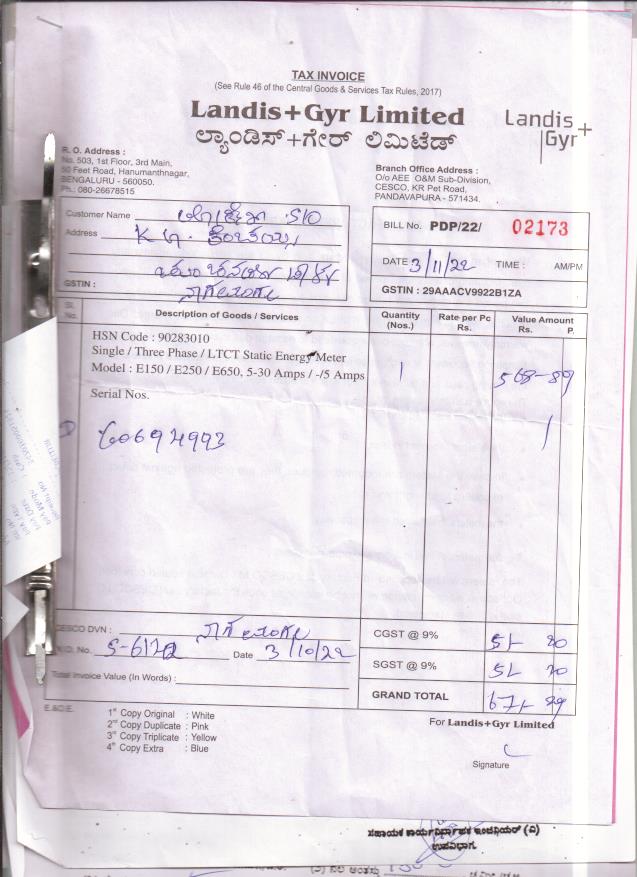 TAX INVOICE
(See Rule 46 of the Central Goods & Services Tax Rules, 2017)
Landis+Gyr Limited
ಲ್ಯಾಂಡಿಸ್+ಗೇರ್ ಲಿಮಿಟೆಡ್
Landis+
Gyr
R. O. Address :
No. 503, 1st Floor, 3rd Main,
50 Feet Road, Hanumanthnagar,
BENGALURU - 560050.
Ph.: 080-26678515
Branch Office Address :
O/o AEE O&M Sub-Division,
CESCO, KR Pet Road,
PANDAVAPURA - 571434.
Customer Name S/O
Address
GSTIN :
BILL No. PDP/22/ 02173
DATE 3/11/22 TIME : AM/PM
GSTIN : 29AAACV9922B1ZA
Sl. No. Description of Goods / Services Quantity (Nos.) Rate per Pc Rs. Value Amount Rs. P.
HSN Code : 90283010
Single / Three Phase / LTCT Static Energy Meter
Model : E150 / E250 / E650, 5-30 Amps / -/5 Amps 1 568-89
Serial Nos.
60694993
CESCO DVN :
W.O. No. Date 3/10/22
Total Invoice Value (In Words) :
CGST @ 9% 51 20
SGST @ 9% 51 20
GRAND TOTAL
E.&O.E.
1st Copy Original : White
2nd Copy Duplicate : Pink
3rd Copy Triplicate : Yellow
4th Copy Extra : Blue
For Landis+Gyr Limited
Signature
ಸಹಾಯಕ ಕಾರ್ಯನಿರ್ವಾಹಕ ಇಂಜಿನಿಯರ್ (ವಿ)
ಉಪವಿಭಾಗ